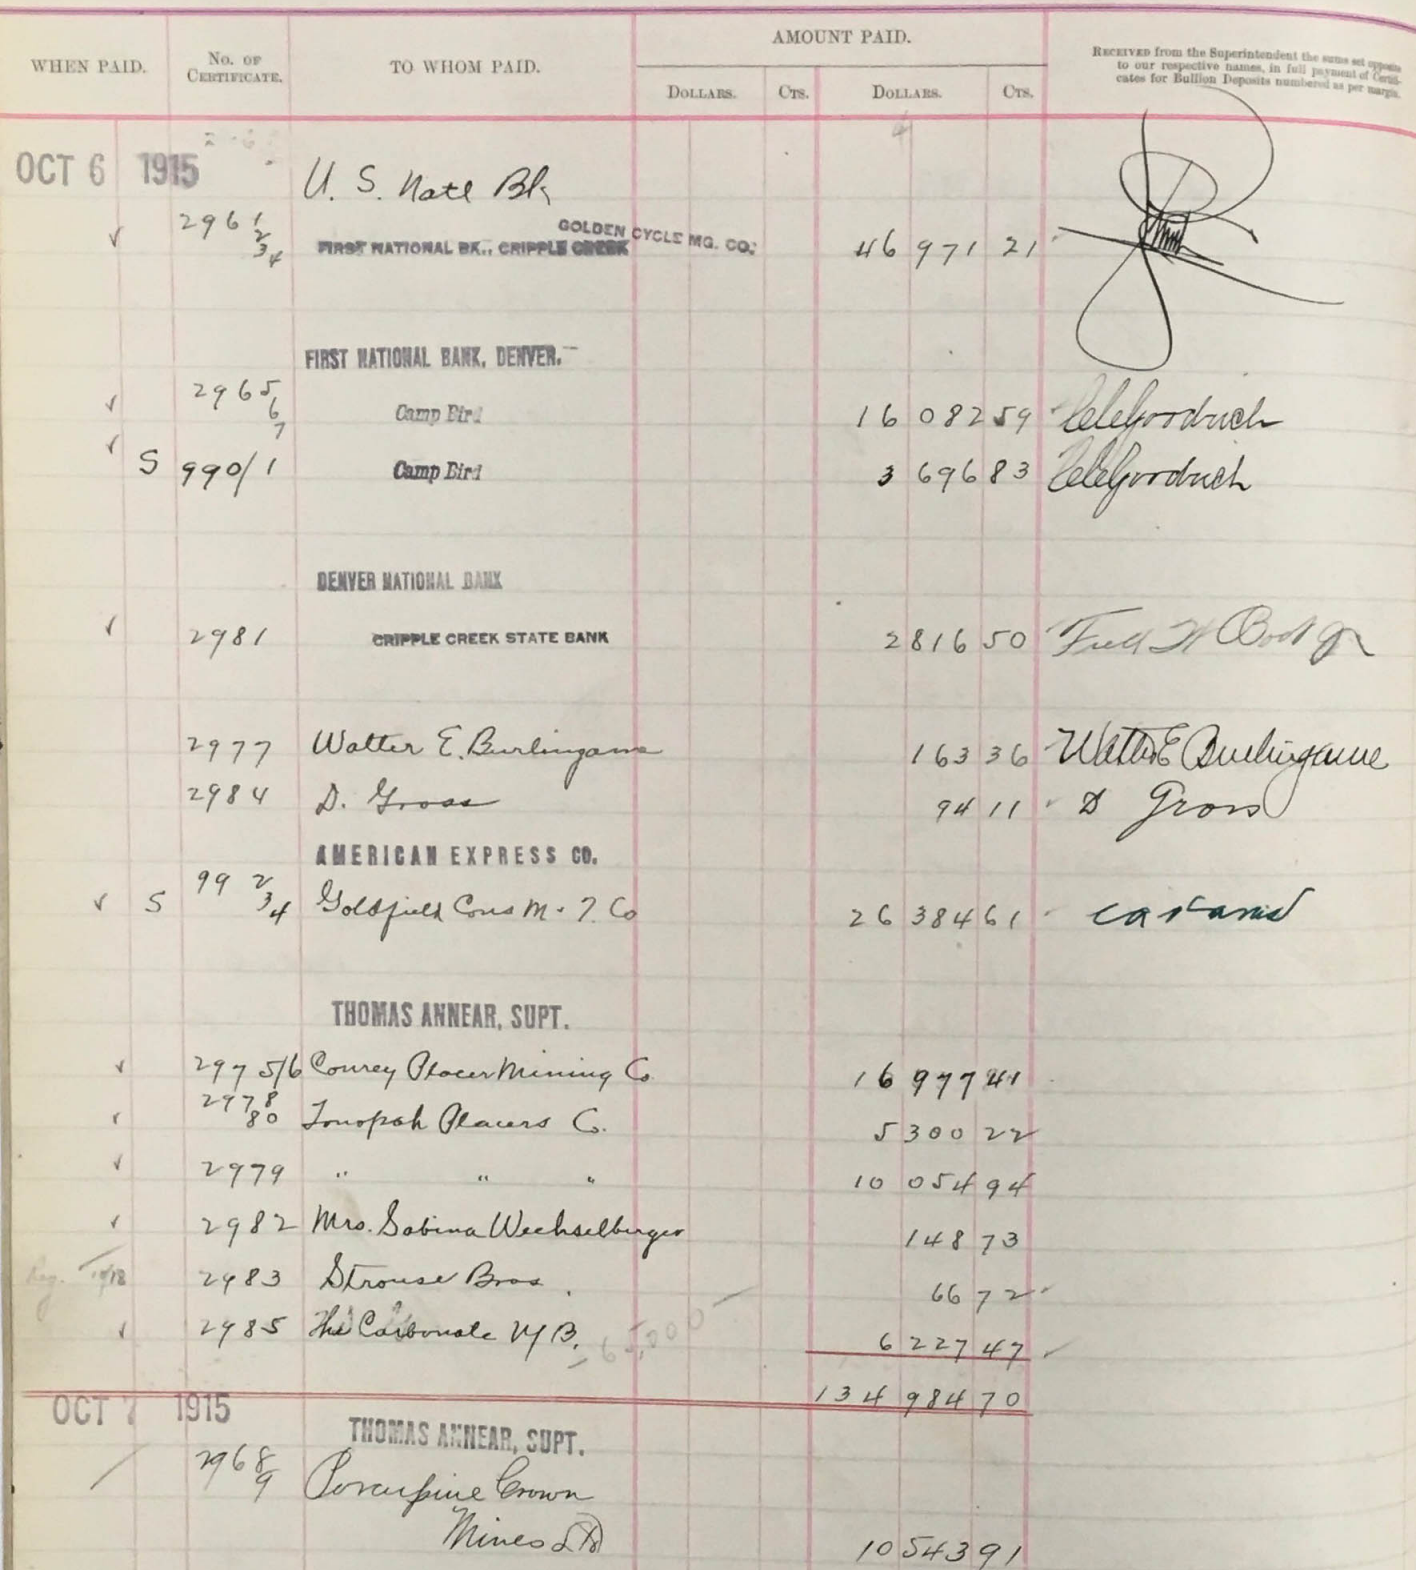 WHEN PAID. No. of Certificate. TO WHOM PAID. AMOUNT PAID. Received from the Superintendent the sums set opposite
to our respective names, in full payment of Certifi-
cates for Bullion Deposits numbered as per margin.
Dollars. Cts. Dollars. Cts.
OCT 6 1915 U. S. Natl Bk
2961 GOLDEN CYCLE MG. CO.
2
3 4 FIRST NATIONAL BK., CRIPPLE CREEK 46 971 21
FIRST NATIONAL BANK, DENVER.
2965
6 Camp Bird 16 082 59 Goodrich
7
S 990/1 Camp Bird 3 696 83 Goodrich
DENVER NATIONAL BANK
2981 CRIPPLE CREEK STATE BANK 2 816 50
2977 Walter E. Burlingame 163 36 Walter E Burlingame
2984 D. Gross 94 11 D Gross
AMERICAN EXPRESS CO.
S 99 2 3 4 Goldfield Cons M. & T. Co 26 384 61
THOMAS ANNEAR, SUPT.
2975/6 Conrey Placer Mining Co 16 977 41
2978
80 Tonopah Placers Co. 5 300 22
2979 " " " 10 054 94
2982 Mrs. Sabina Wechselberger 148 73
2983 Strouse Bros. 66 72
2985 The Carbonate N/B. 65,000 6 227 47
134 984 70
OCT 7 1915
THOMAS ANNEAR, SUPT.
2968
9 Porcupine Crown
Mines Ltd 10 543 91